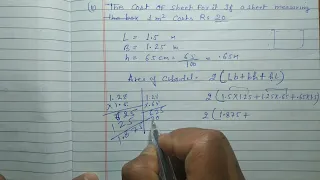 (ii) The Cost of sheet for it if a sheet measuring
the box 1 m² Costs Rs 20.
L = 1.5 m
B = 1.25 m
h = 65 cm = 65/100 = .65 m
Area of Cuboid = 2(lb+bh+hl)
1.25
1.25
2(1.5x1.25+1.25x.65+.65x1.5)
625
2(1.875+
125